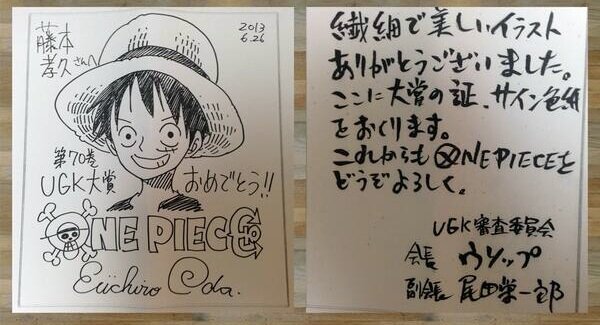 藤本
孝久さんへ
2013
6.26
第70巻
UGK大賞
おめでとう!!
ONE PIECE
Eiichiro Oda.
繊細で美しいイラスト
ありがとうございました。
ここに大賞の証、サイン色紙
をおくります。
これからもONE PIECEを
どうぞよろしく。
UGK審査委員会
会長 ウソップ
副会長 尾田栄一郎